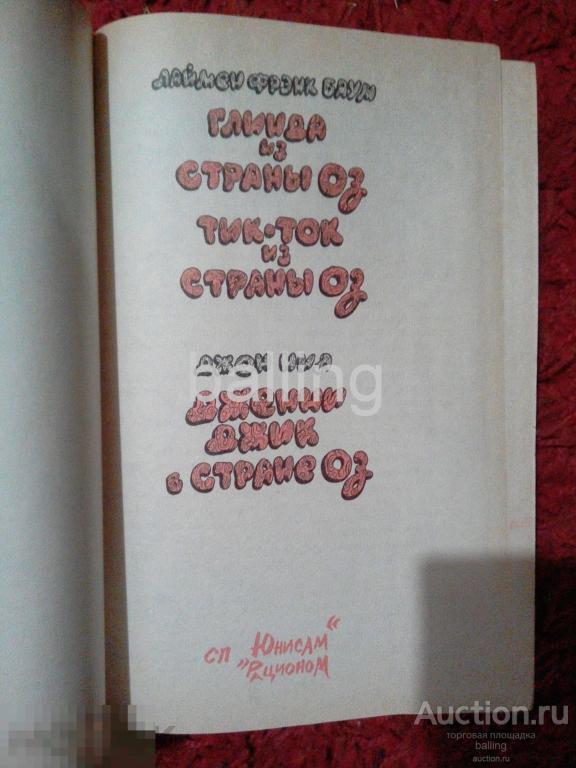 ЛАЙМЕН ФРЭНК БАУМ
ГЛИНДА
ИЗ
СТРАНЫ ОЗ
ТИК-ТОК
ИЗ
СТРАНЫ ОЗ
ДЖОН
balling
ДЖЕННИ
ДЖИК
в СТРАНЕ ОЗ
СП „Юнисам“
„Рационом
Auction.ru
торговая площадка
balling
auction.ru